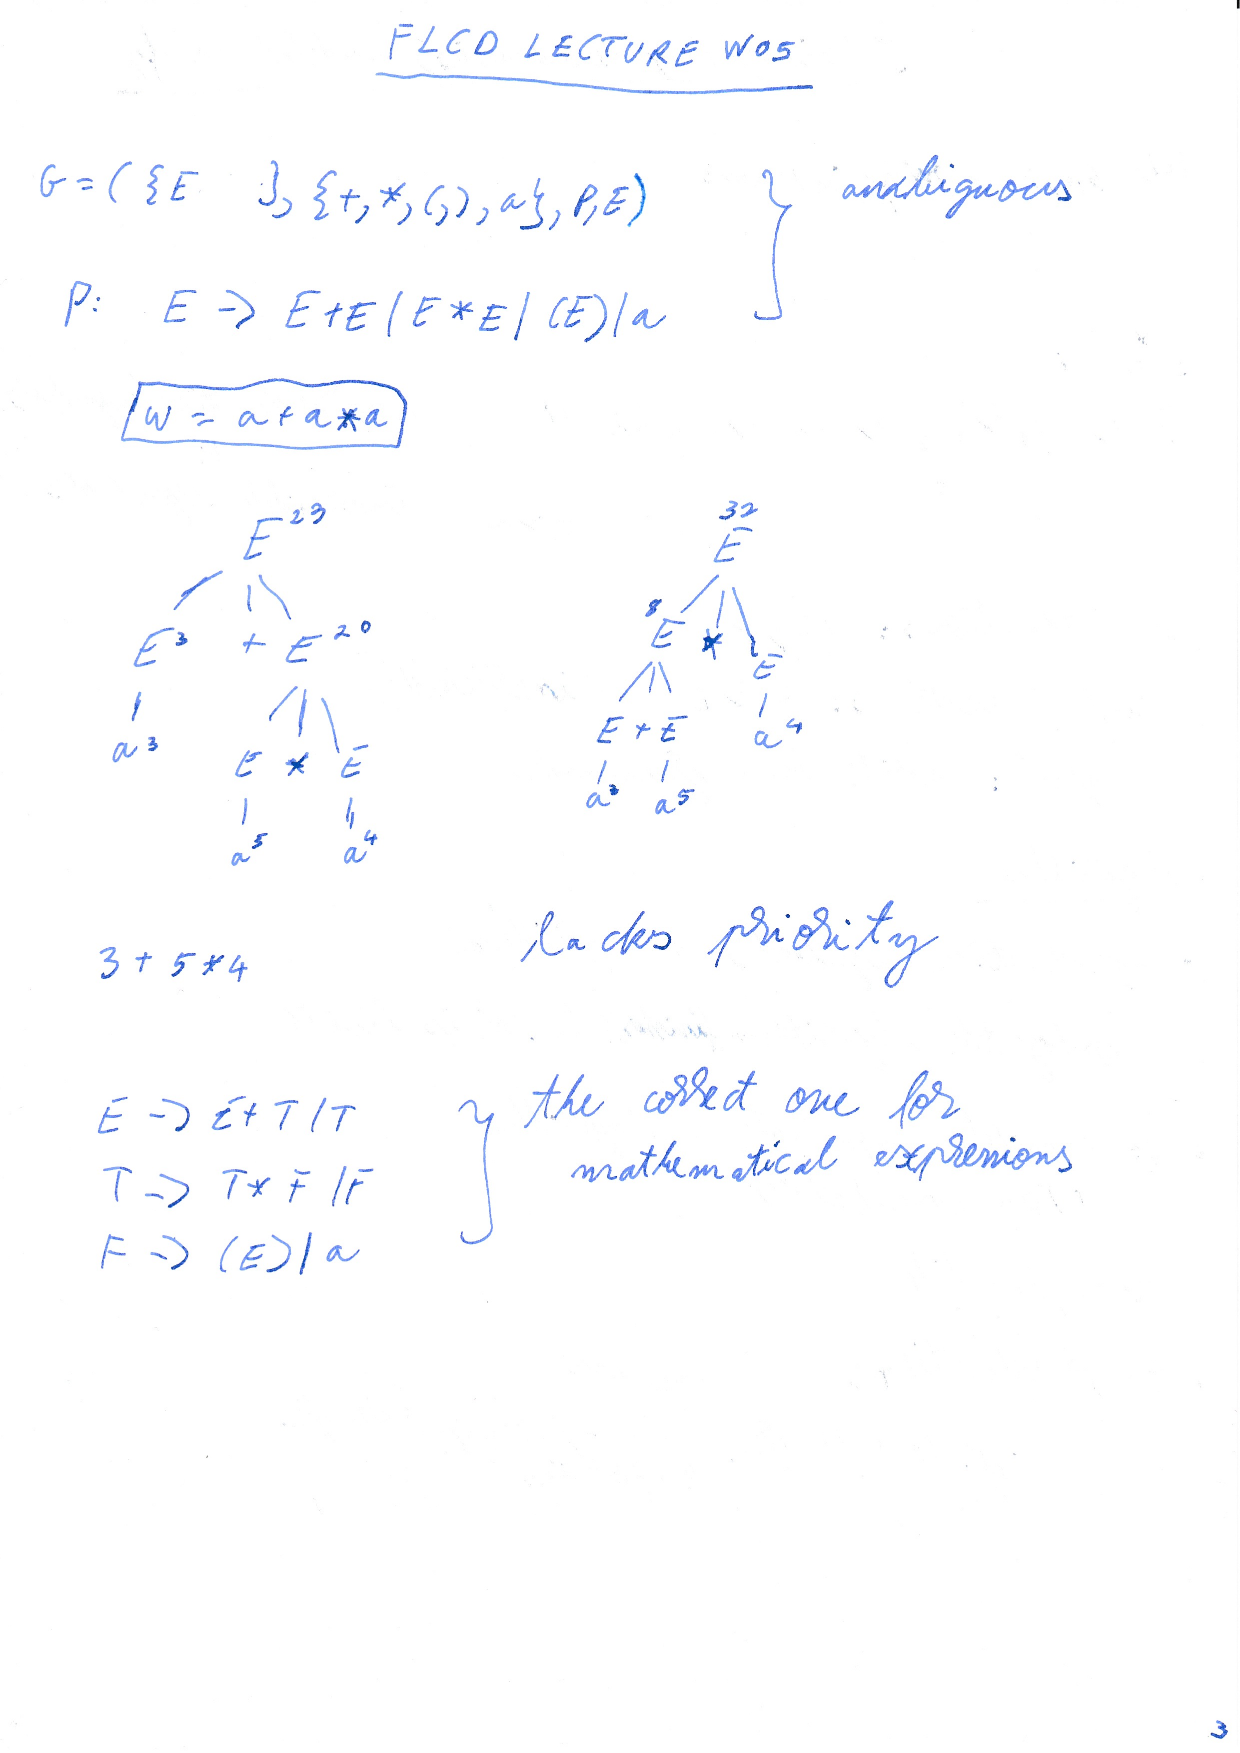 FLCD LECTURE W05
G = ({E }, {+, *, (, ), a}, P, E)
ambiguous
P: E -> E+E | E*E | (E) | a
w = a + a * a
E 23
E 3 + E 20
a 3 E * E
a 5 a 4
32
E
8 E * E
E + E a 4
a 3 a 5
lacks priority
3 + 5 * 4
E -> E + T | T
T -> T * F | F
F -> (E) | a
the correct one for
mathematical expressions
3